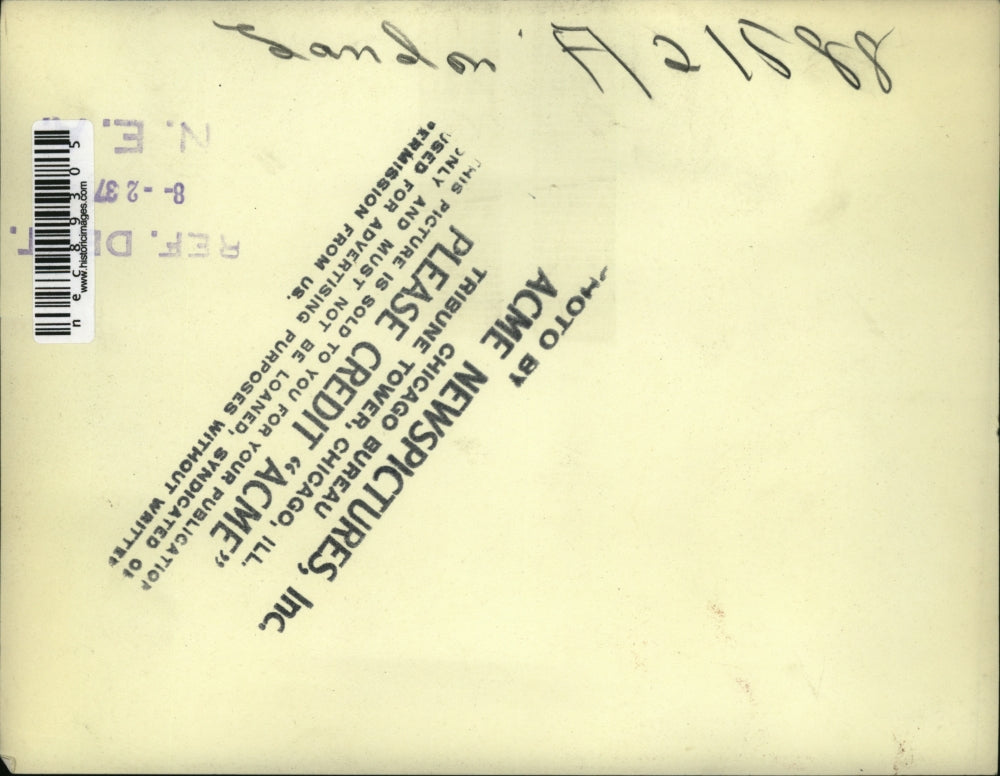 Landon A 21588
N. E.
8 - 2 37
REF. DEPT.
nec89305
www.historicimages.com
PHOTO BY
ACME NEWSPICTURES, Inc.
CHICAGO BUREAU
TRIBUNE TOWER, CHICAGO, ILL.
PLEASE CREDIT "ACME"
THIS PICTURE IS SOLD TO YOU FOR YOUR PUBLICATION
ONLY AND MUST NOT BE LOANED, SYNDICATED OR
USED FOR ADVERTISING PURPOSES WITHOUT WRITTEN
PERMISSION FROM US.